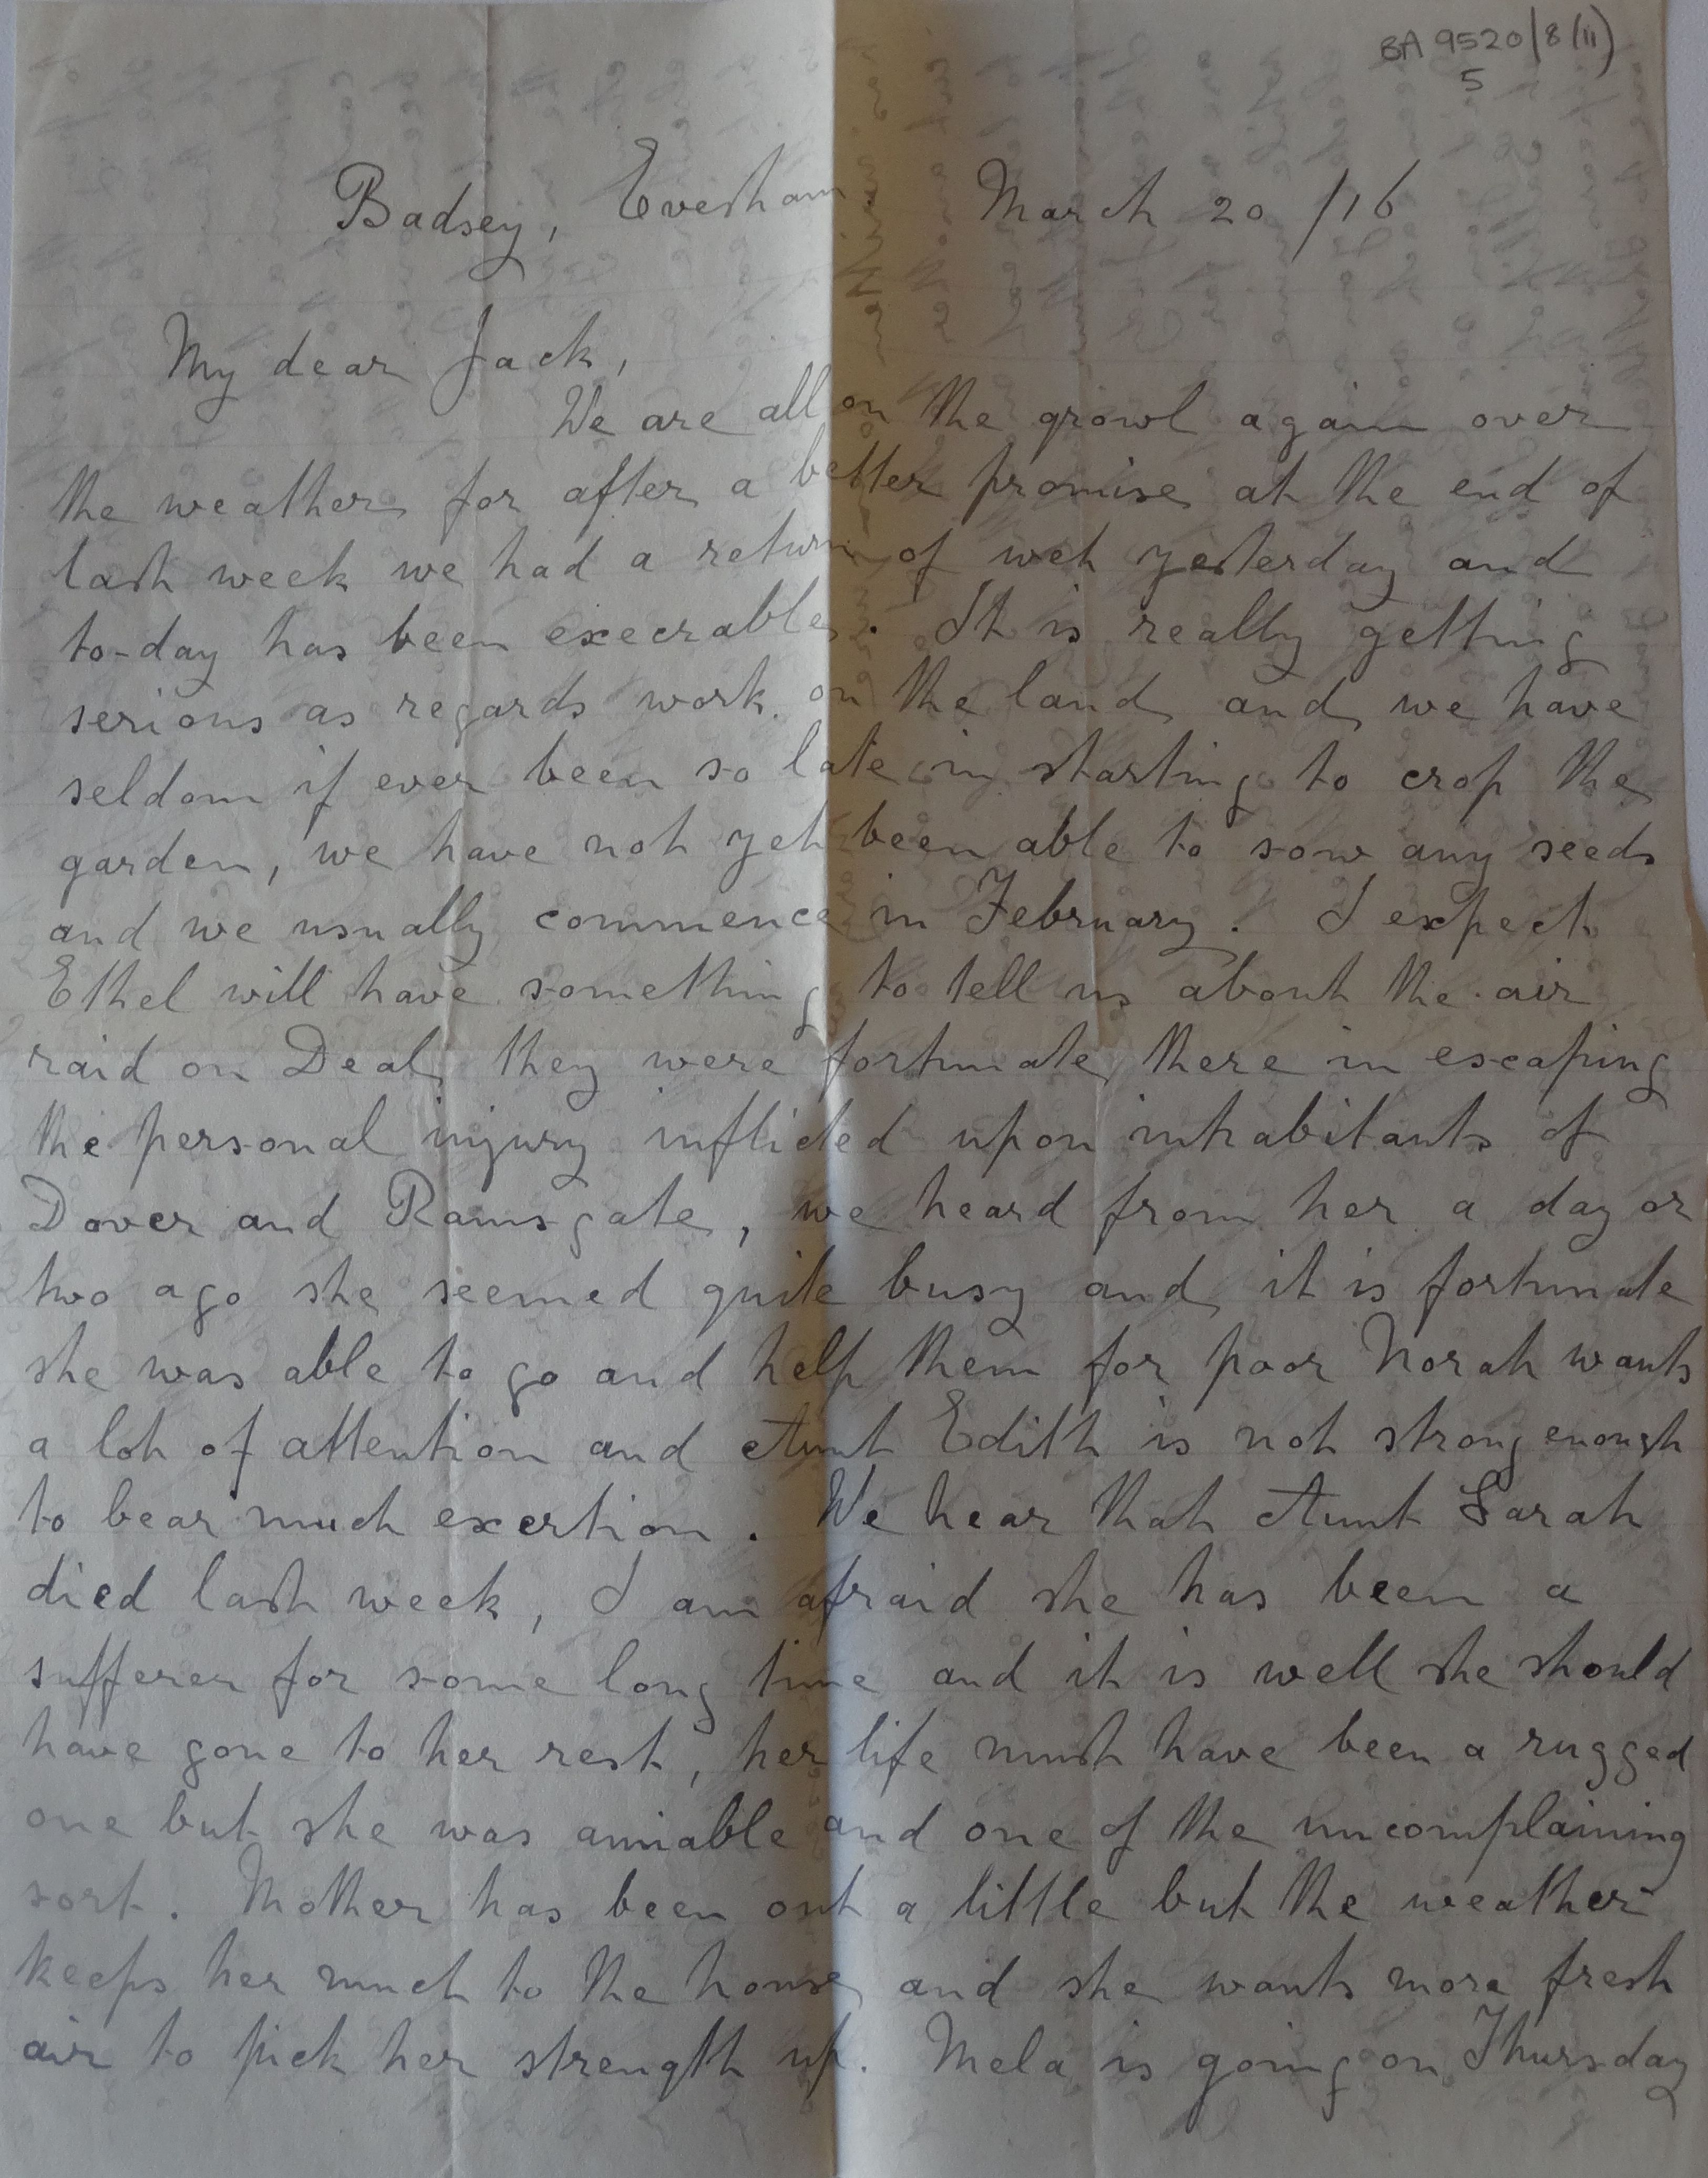 BA 9520/8(ii)
5
Badsey, Evesham March 20 /16
My dear Jack,
We are all on the growl again over
the weather for after a better promise at the end of
last week we had a return of wet yesterday and
to-day has been execrable. It is really getting
serious as regards work on the land and we have
seldom if ever been so late in starting to crop the
garden, we have not yet been able to sow any seeds
and we usually commence in February. I expect
Ethel will have something to tell us about the air
raid on Deal, they were fortunate there in escaping
the personal injury inflicted upon inhabitants of
Dover and Ramsgate, we heard from her a day or
two ago she seemed quite busy and it is fortunate
she was able to go and help them for poor Norah wants
a lot of attention and Aunt Edith is not strong enough
to bear much exertion. We hear that Aunt Sarah
died last week, I am afraid she has been a
sufferer for some long time and it is well she should
have gone to her rest, her life must have been a rugged
one but she was amiable and one of the uncomplaining
sort. Mother has been out a little but the weather
keeps her much to the house and she wants more fresh
air to pick her strength up. Mela is going on Thursday